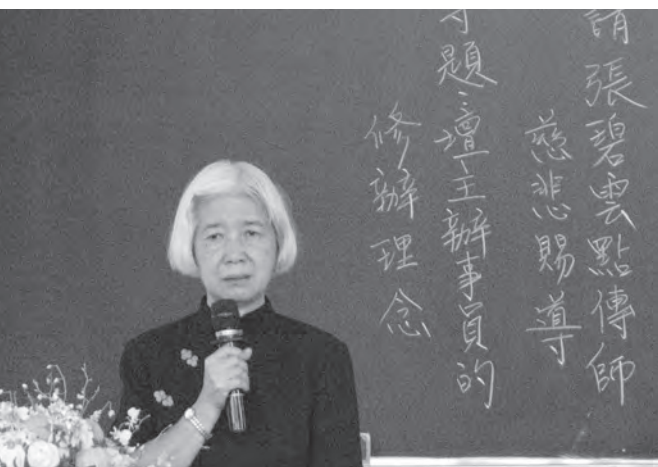 請張碧雲點傳師
慈悲賜導
專題：壇主辦事員的
修辦理念